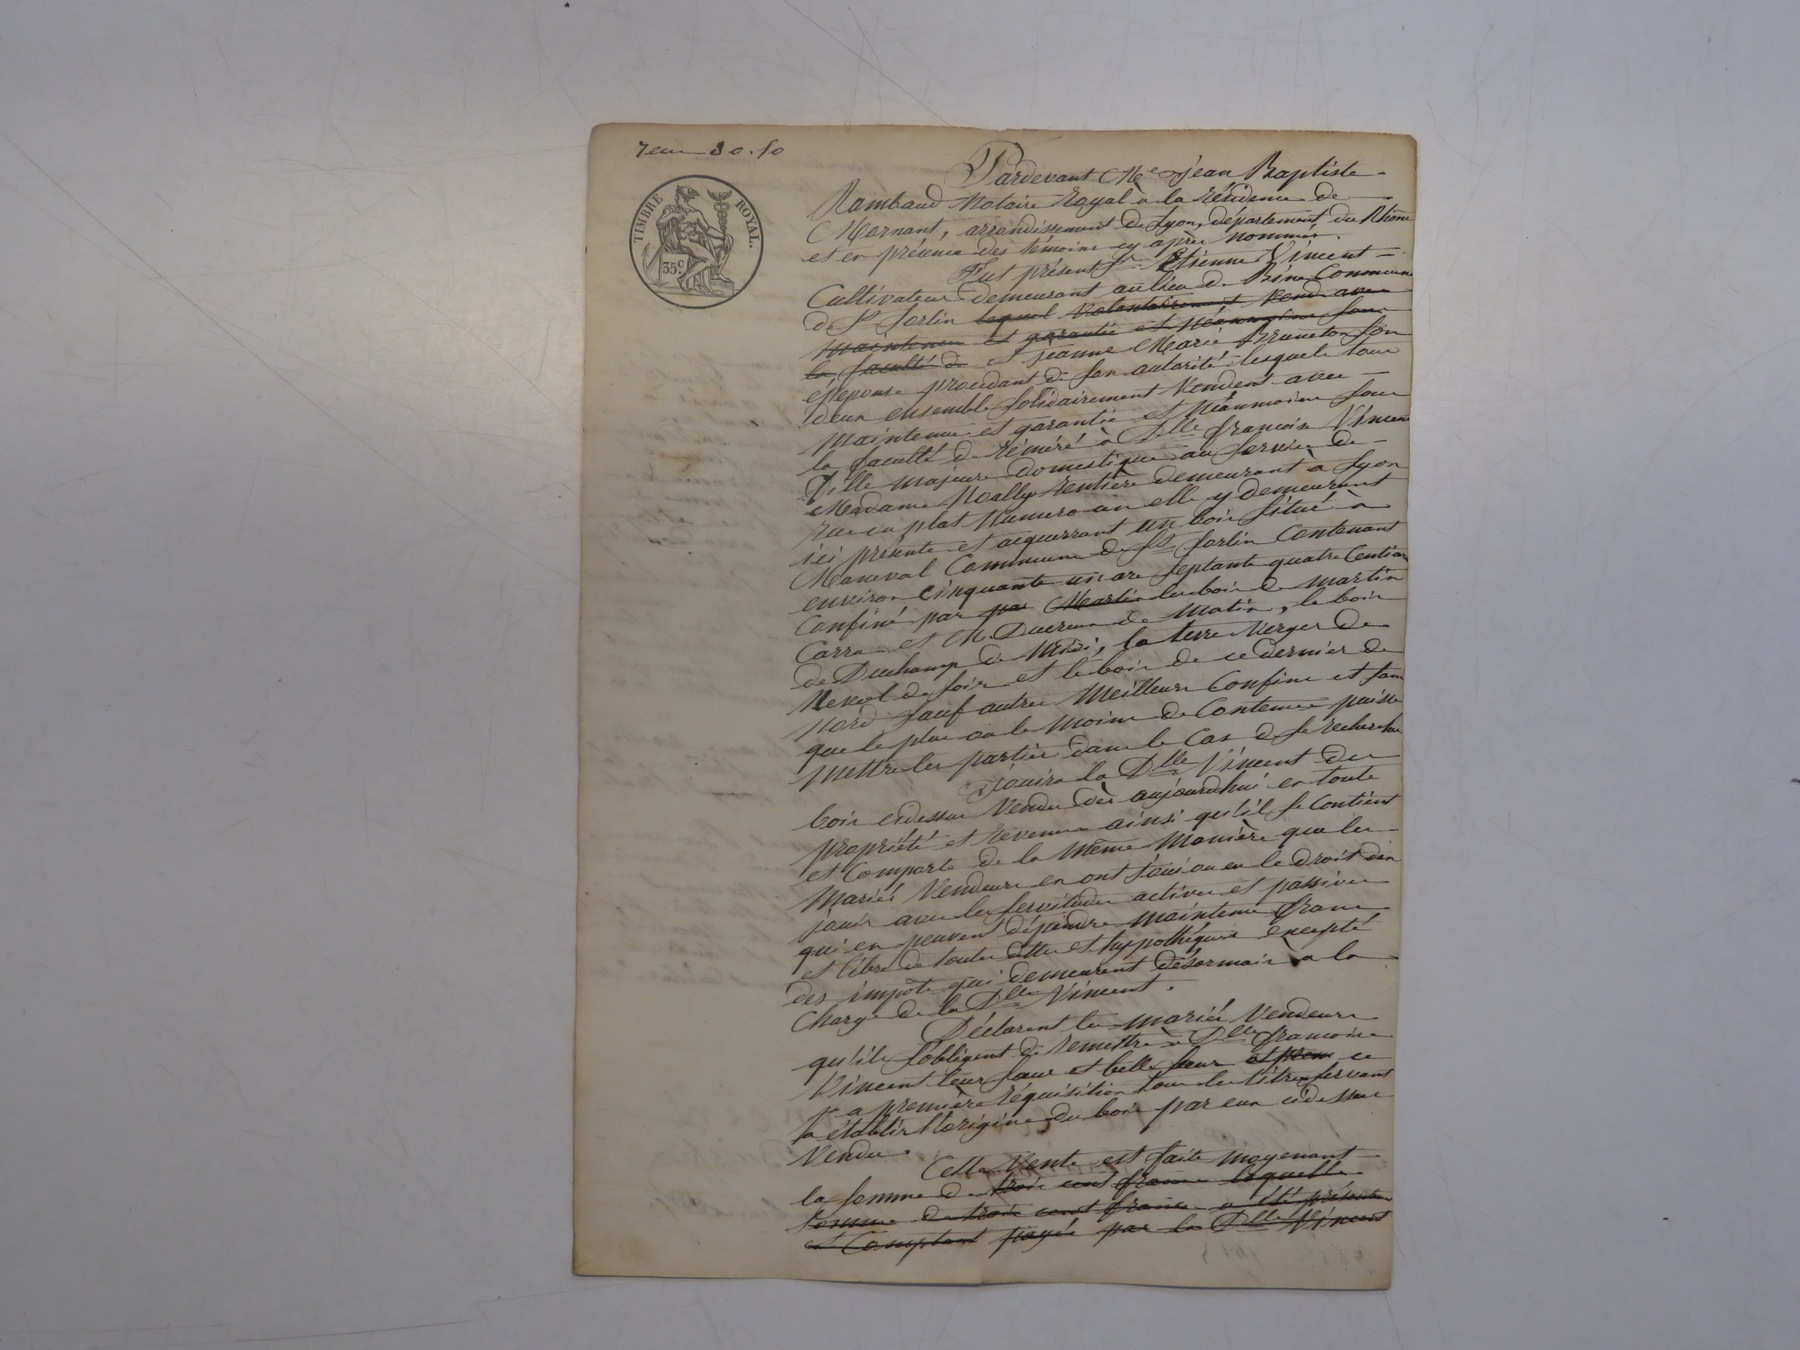 30.50
TIMBRE ROYAL.
35c
Pardevant Me Jean Baptiste
Rambaud Notaire Royal à la résidence de
Mornant, arrondissement de Lyon, département du Rhône
et en présence des témoins cy après nommés.
Fut présent Sr Etienne Vincent
Cultivateur demeurant au lieu de Commune
de St Sorlin lequel volontairement vend avec
maintenue et garantie et néanmoins sous
la faculté de et jeanne Marie Bruneton son
épouse procédant de son autorité lesquels tous
deux ensemble solidairement vendent avec
maintenue et garantie et néanmoins sous
la faculté de réméré à Dlle françoise Vincent
fille majeure domestique au service de
Madame Noally rentière demeurant à Lyon
rue du plat numéro un elle y demeurant
ici présente et acquerrant un bois situé à
Maneval Commune de St Sorlin Contenant
environ cinquante un are septante quatre Centiares
Confiné par par Martin les bois de martin
Carra et M. Ducreux de matin, le bois
de Duchamp de Midi, la terre verger de
de soir et le bois de ce dernier de
nord sauf autres meilleurs Confins et sans
que le plus ou le moins de Contenue puisse
mettre les parties dans le Cas de se rechercher
jouira la Dlle Vincent du
bois cidessus vendu dès aujourdhui en toute
propriété et revenus ainsi qu'il se Contient
et Comporte de la même Manière que les
Mariés Vendeurs en ont joui ou eu le droit d'en
jouir avec les servitudes actives et passives
qui en peuvent dépendre maintenu franc
et libre de toutes dettes et hypothéques excepté
des impôts qui demeurent désormais à la
Charge de la Dlle Vincent.
Déclarent les mariés Vendeurs
qu'ils s'obligent de remettre à Dlle françoise
Vincent leur sœur et belle sœur ce
pt a première réquisition tous les titres servant
à établir l'origine du bois par eux cidessus
Vendu.
Cette Vente est faite moyenant
la somme de trois cent francs laquelle
somme de trois cent francs a été présentement
et Comptant payée par la Dlle Vincent